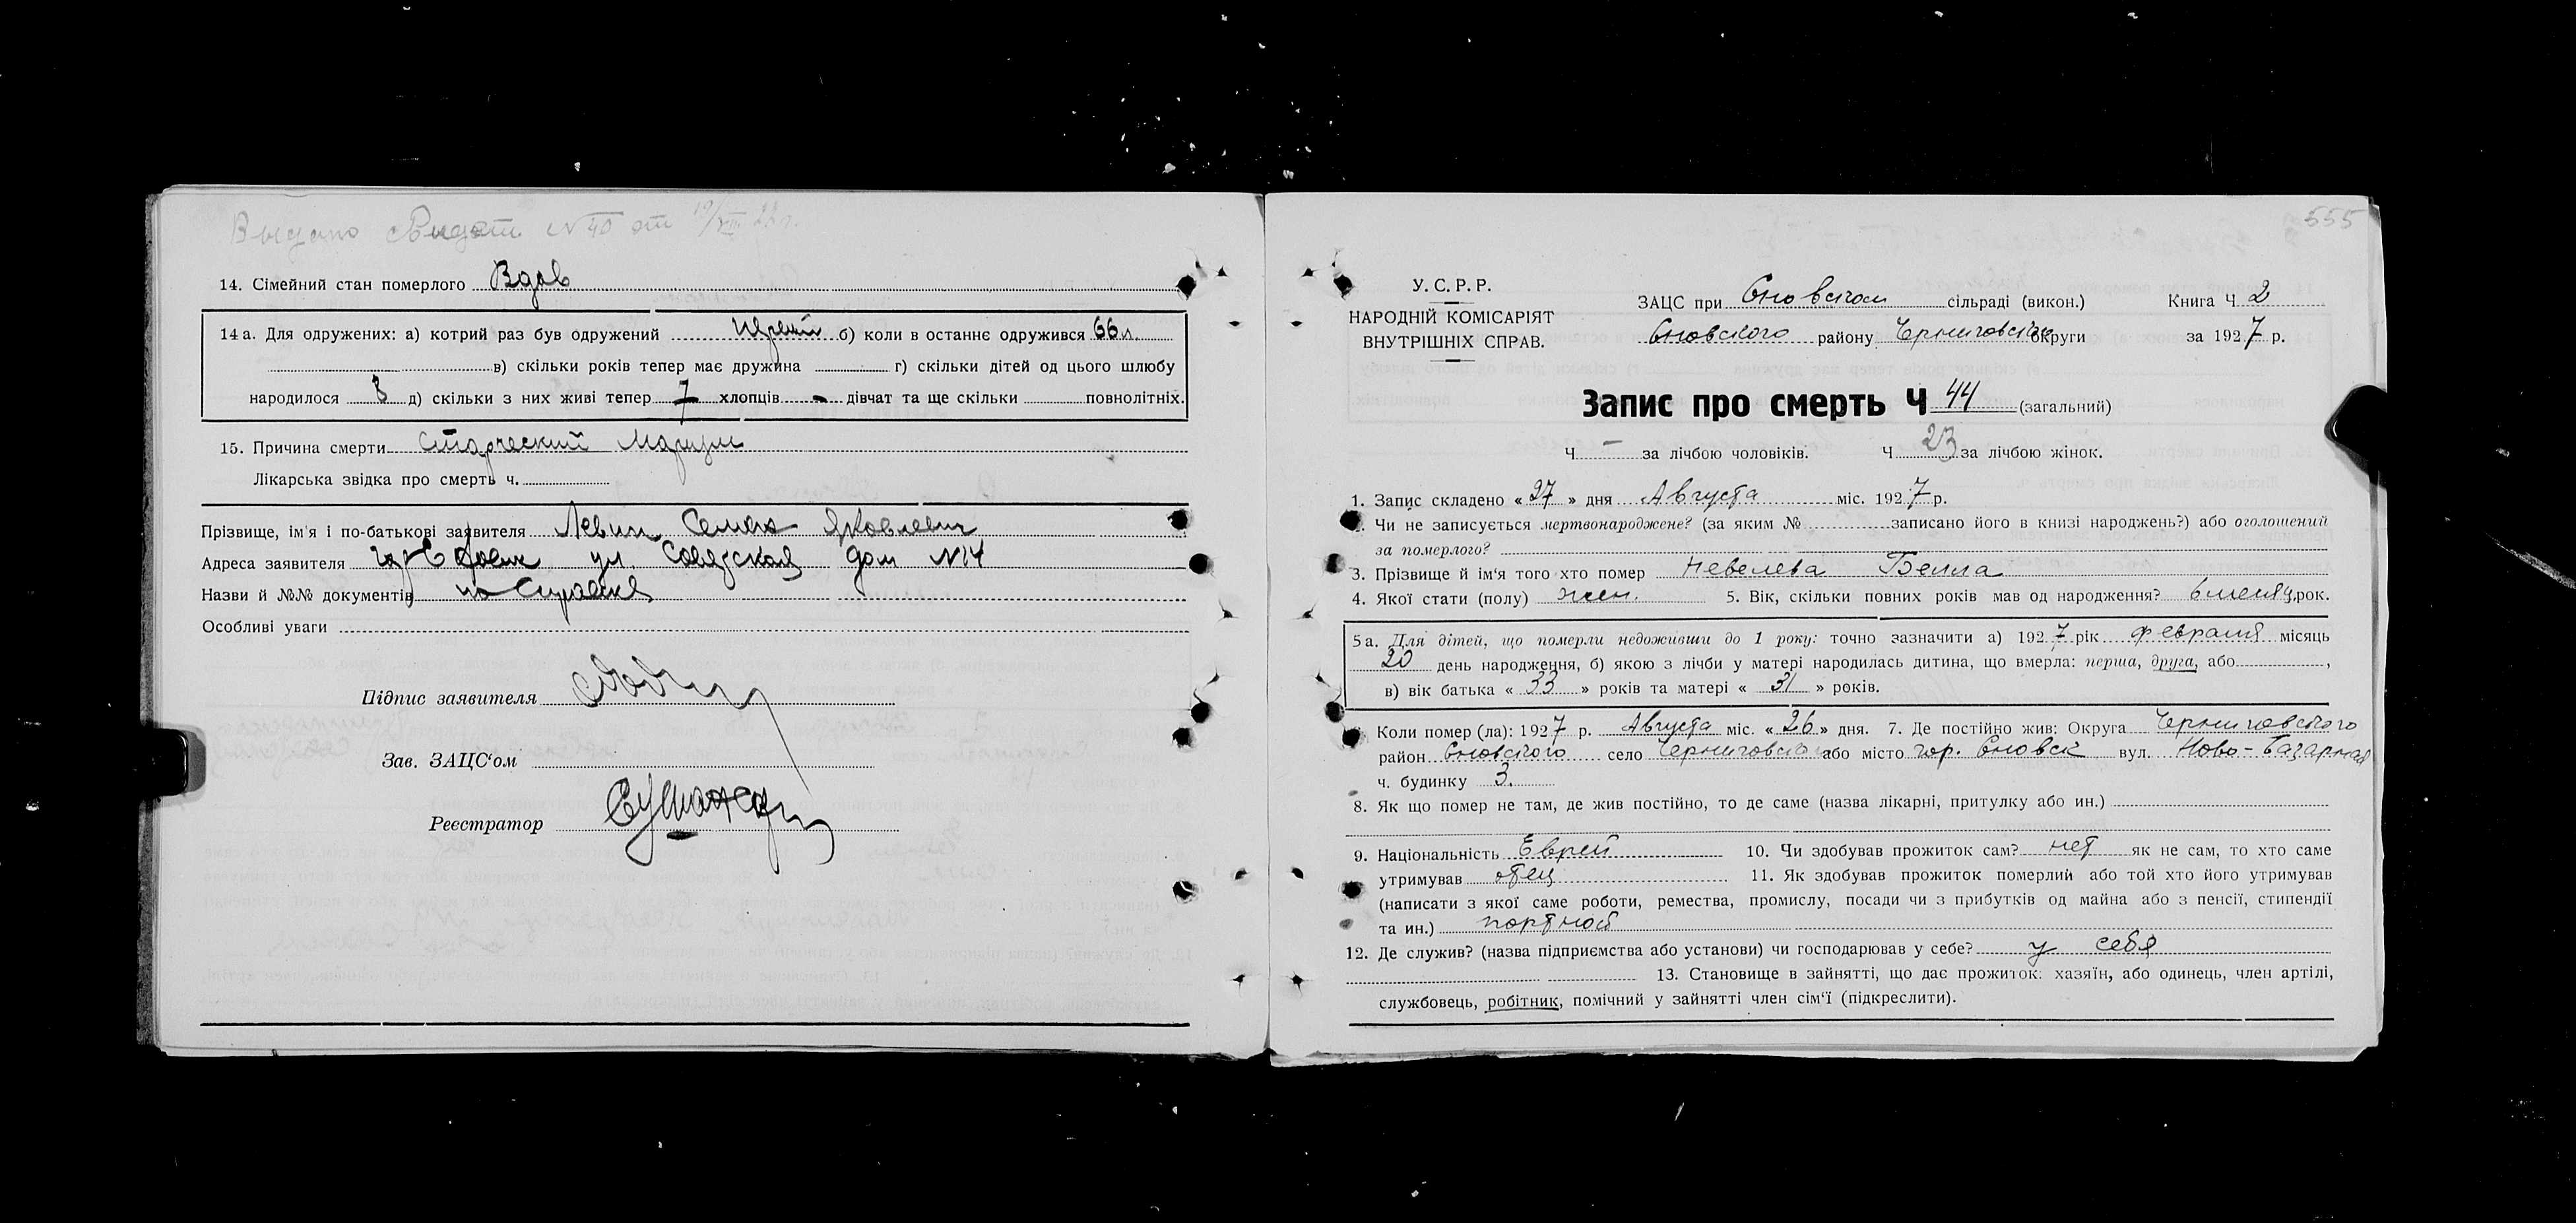 Выдано Свидет. №40 от 19/XIII 22 г.
14. Сімейний стан померлого Вдов
14а. Для одружених: а) котрий раз був одружений первий б) коли в останнє одружився 66 л.
в) скільки років тепер має дружина г) скільки дітей од цього шлюбу
народилося 8 д) скільки з них живі тепер 7 хлопців - дівчат та ще скільки повнолітніх.
15. Причина смерти Старческий Маразм
Лікарська звідка про смерть ч.
Прізвище, ім'я і по-батькові заявителя Левин Семен Яковлевич
Адреса заявителя ул. Советская дом №14
Назви й №№ документів по Справке
Особливі уваги
Підпис заявителя
Зав. ЗАЦС'ом
Реєстратор
555
У.С.Р.Р.
НАРОДНІЙ КОМІСАРІЯТ
ВНУТРІШНІХ СПРАВ.
ЗАЦС при Сновском сільраді (викон.) Книга Ч 2
Сновского району Черниговской округи за 1927 р.
Запис про смерть Ч 44 (загальний)
Ч — за лічбою чоловіків. Ч 23 за лічбою жінок.
1. Запис складено «27» дня Августа міс. 1927 р.
2. Чи не записується мертвонароджене? (за яким № записано його в книзі народжень?) або оголошений
за померлого?
3. Прізвище й ім'я того хто помер Невелева Белла
4. Якої стати (полу) жен. 5. Вік, скільки повних років мав од народження? 6 месяц. рок.
5а. Для дітей, що померли недоживши до 1 року: точно зазначити а) 1927 рік февраля місяць
20 день народження, б) якою з лічби у матері народилась дитина, що вмерла: перша, друга, або ,
в) вік батька «33» років та матері «31» років.
6. Коли помер (ла): 1927 р. Августа міс. «26» дня. 7. Де постійно жив: Округа Черниговского
район Сновского село Черниговской або місто гор. Сновск вул. Ново-Базарная
ч. будинку 3.
8. Як що помер не там, де жив постійно, то де саме (назва лікарні, притулку або ин.)
9. Національність Еврей 10. Чи здобував прожиток сам? нет як не сам, то хто саме
утримував отец 11. Як здобував прожиток померлий або той хто його утримував
(написати з якої саме роботи, ремества, промислу, посади чи з прибутків од майна або з пенсії, стипендії
та ин.) портной
12. Де служив? (назва підприємства або установи) чи господарював у себе? у себя
13. Становище в зайнятті, що дає прожиток: хазяїн, або одинець, член артілі,
службовець, робітник, помічний у зайнятті член сім'ї (підкреслити).